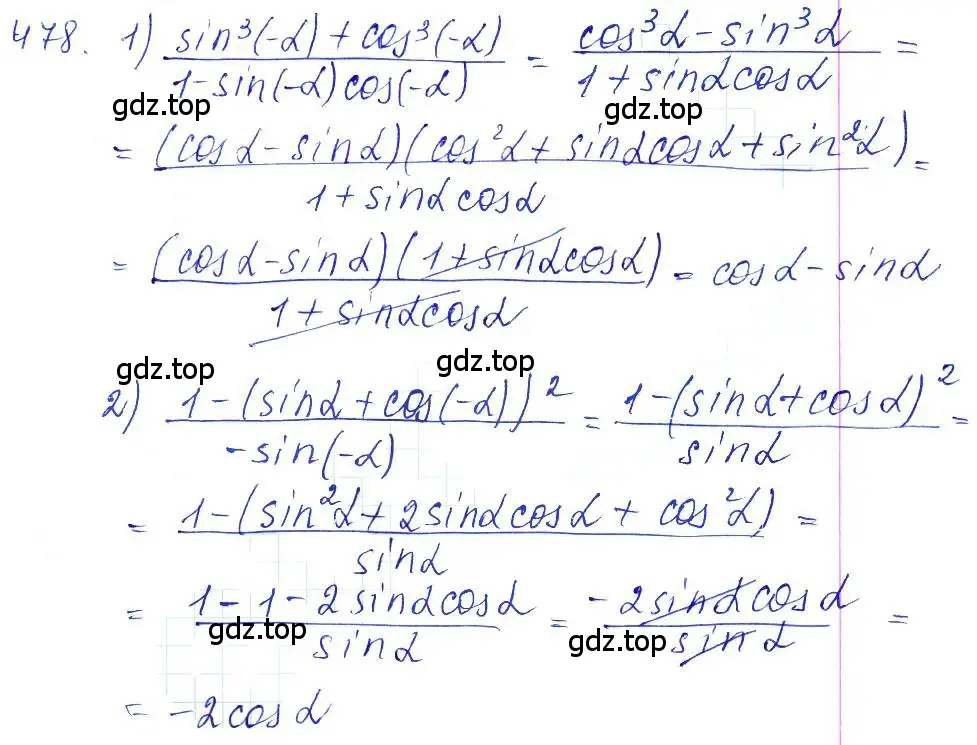 478. 1) (sin³(-α) + cos³(-α))/(1-sin(-α)cos(-α)) = (cos³α - sin³α)/(1+sinαcosα) =
gdz.top gdz.top
= ((cosα - sinα)(cos²α + sinαcosα + sin²α))/(1+sinαcosα) =
= ((cosα-sinα)(1+sinαcosα))/(1+sinαcosα) = cosα - sinα
gdz.top gdz.top
2) (1-(sinα+cos(-α))²)/(-sin(-α)) = (1-(sinα+cosα)²)/(sinα) =
= (1-(sin²α + 2sinαcosα + cos²α))/(sinα) =
= (1-1-2sinαcosα)/(sinα) = (-2sinαcosα)/(sinα) =
gdz.top gdz.top
= -2cosα